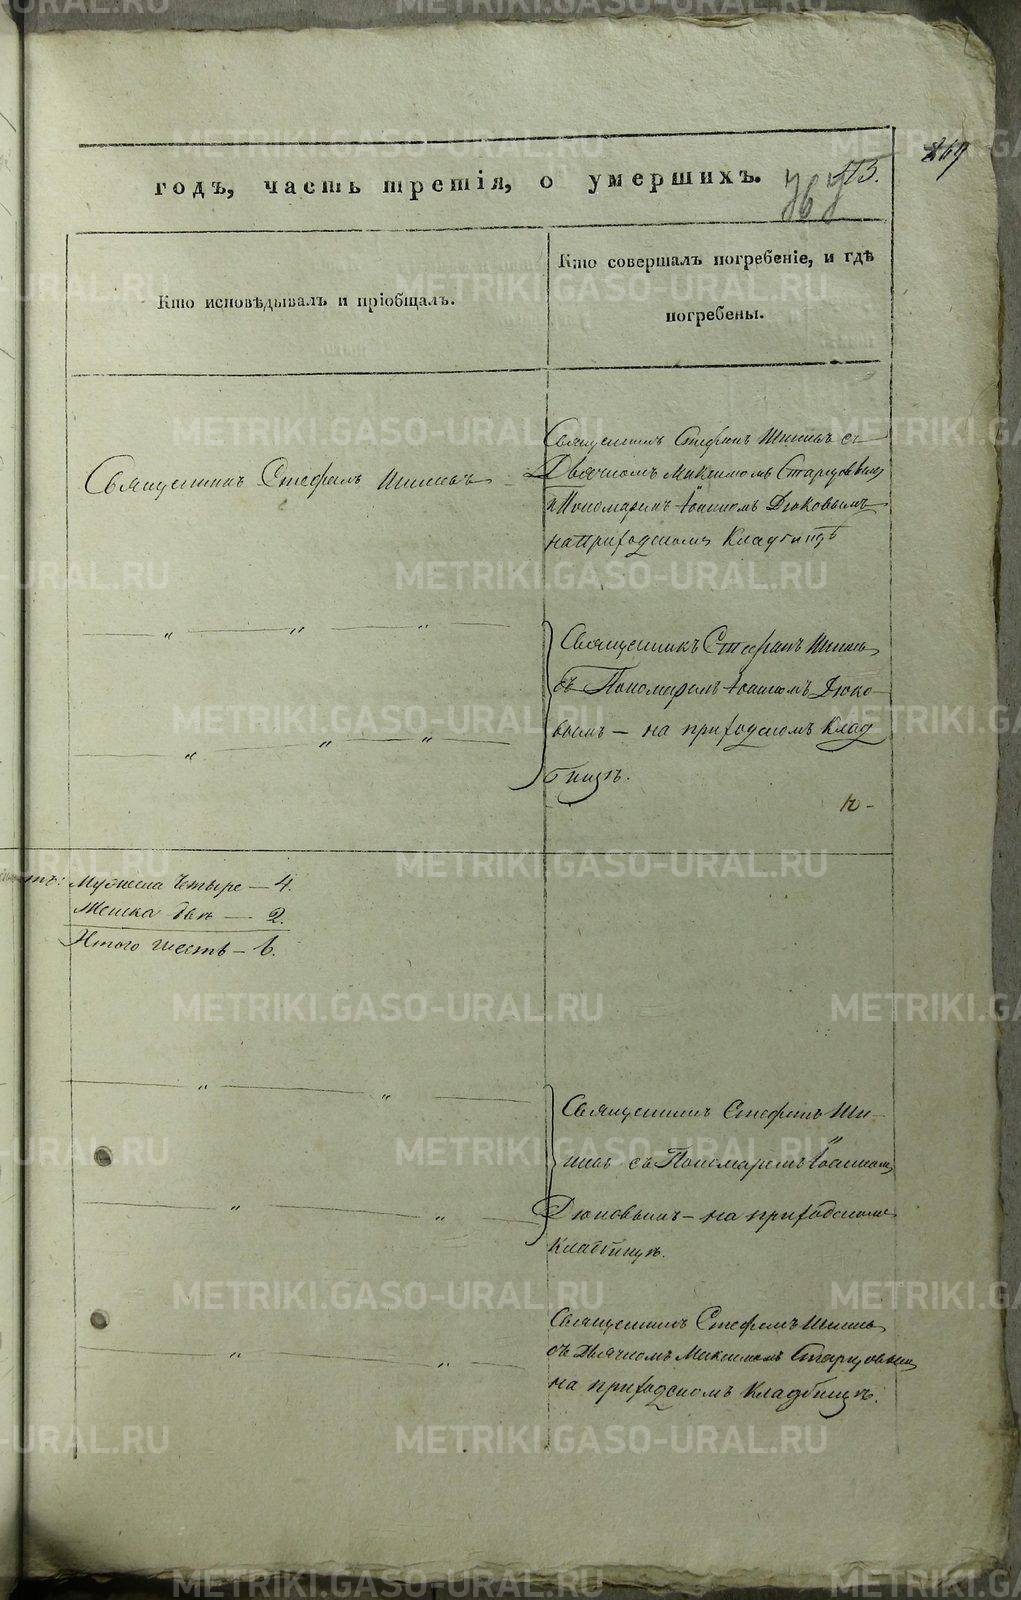 годъ, часть третія, о умершихъ.
113.
269
Кто исповѣдывалъ и пріобщалъ.
Кто совершалъ погребеніе, и гдѣ
погребены.
Священникъ Стефанъ
Священникъ Стефанъ съ
Дьячкомъ Максимомъ Старцовымъ
и Пономаремъ Іоанномъ Дюковымъ
на приходскомъ Кладбищѣ
Священникъ Стефанъ
съ Пономаремъ Іоанномъ Дюко-
вымъ — на приходскомъ Клад
бищѣ.
Мужеска четыре — 4.
Женска двѣ — 2.
Итого шесть — 6.
Священникъ Стефанъ
съ Пономаремъ Іоанномъ
Дюковымъ — на приходскомъ
Кладбищѣ.
Священникъ Стефанъ
съ Дьячкомъ Максимомъ Старцовымъ
на приходскомъ Кладбищѣ.
METRIKI.GASO-URAL.RU